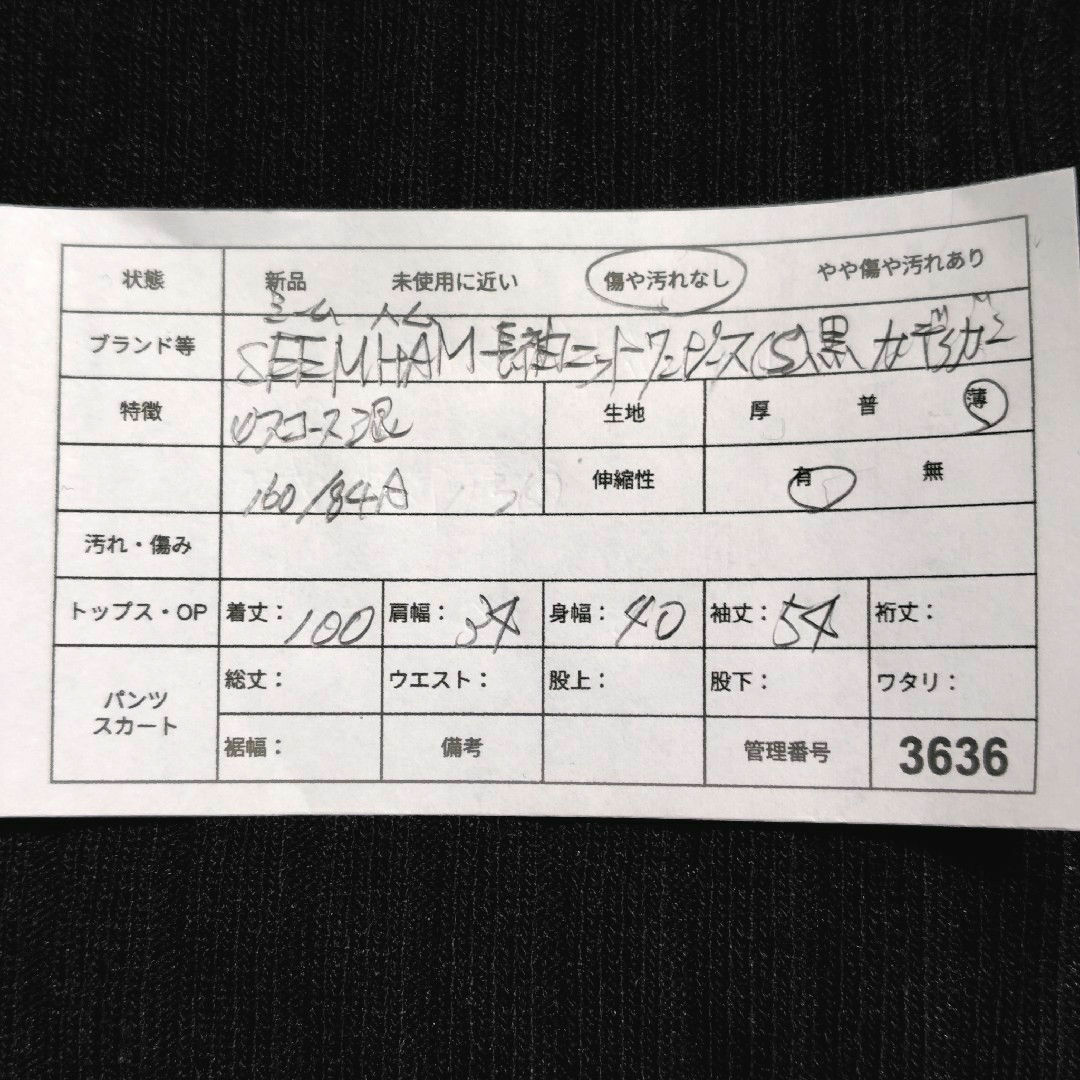 状態 新品 未使用に近い 傷や汚れなし やや傷や汚れあり
シーム ハム
ブランド等 SEEM HAM 長袖ニットワンピース(S)黒
特徴 リヤコース混 生地 厚 普 薄
160/84A 伸縮性 有 無
汚れ・傷み
トップス・OP 着丈:100 肩幅:34 身幅:40 袖丈:54 裄丈:
パンツ スカート 総丈: ウエスト: 股上: 股下: ワタリ:
裾幅: 備考 管理番号 3636